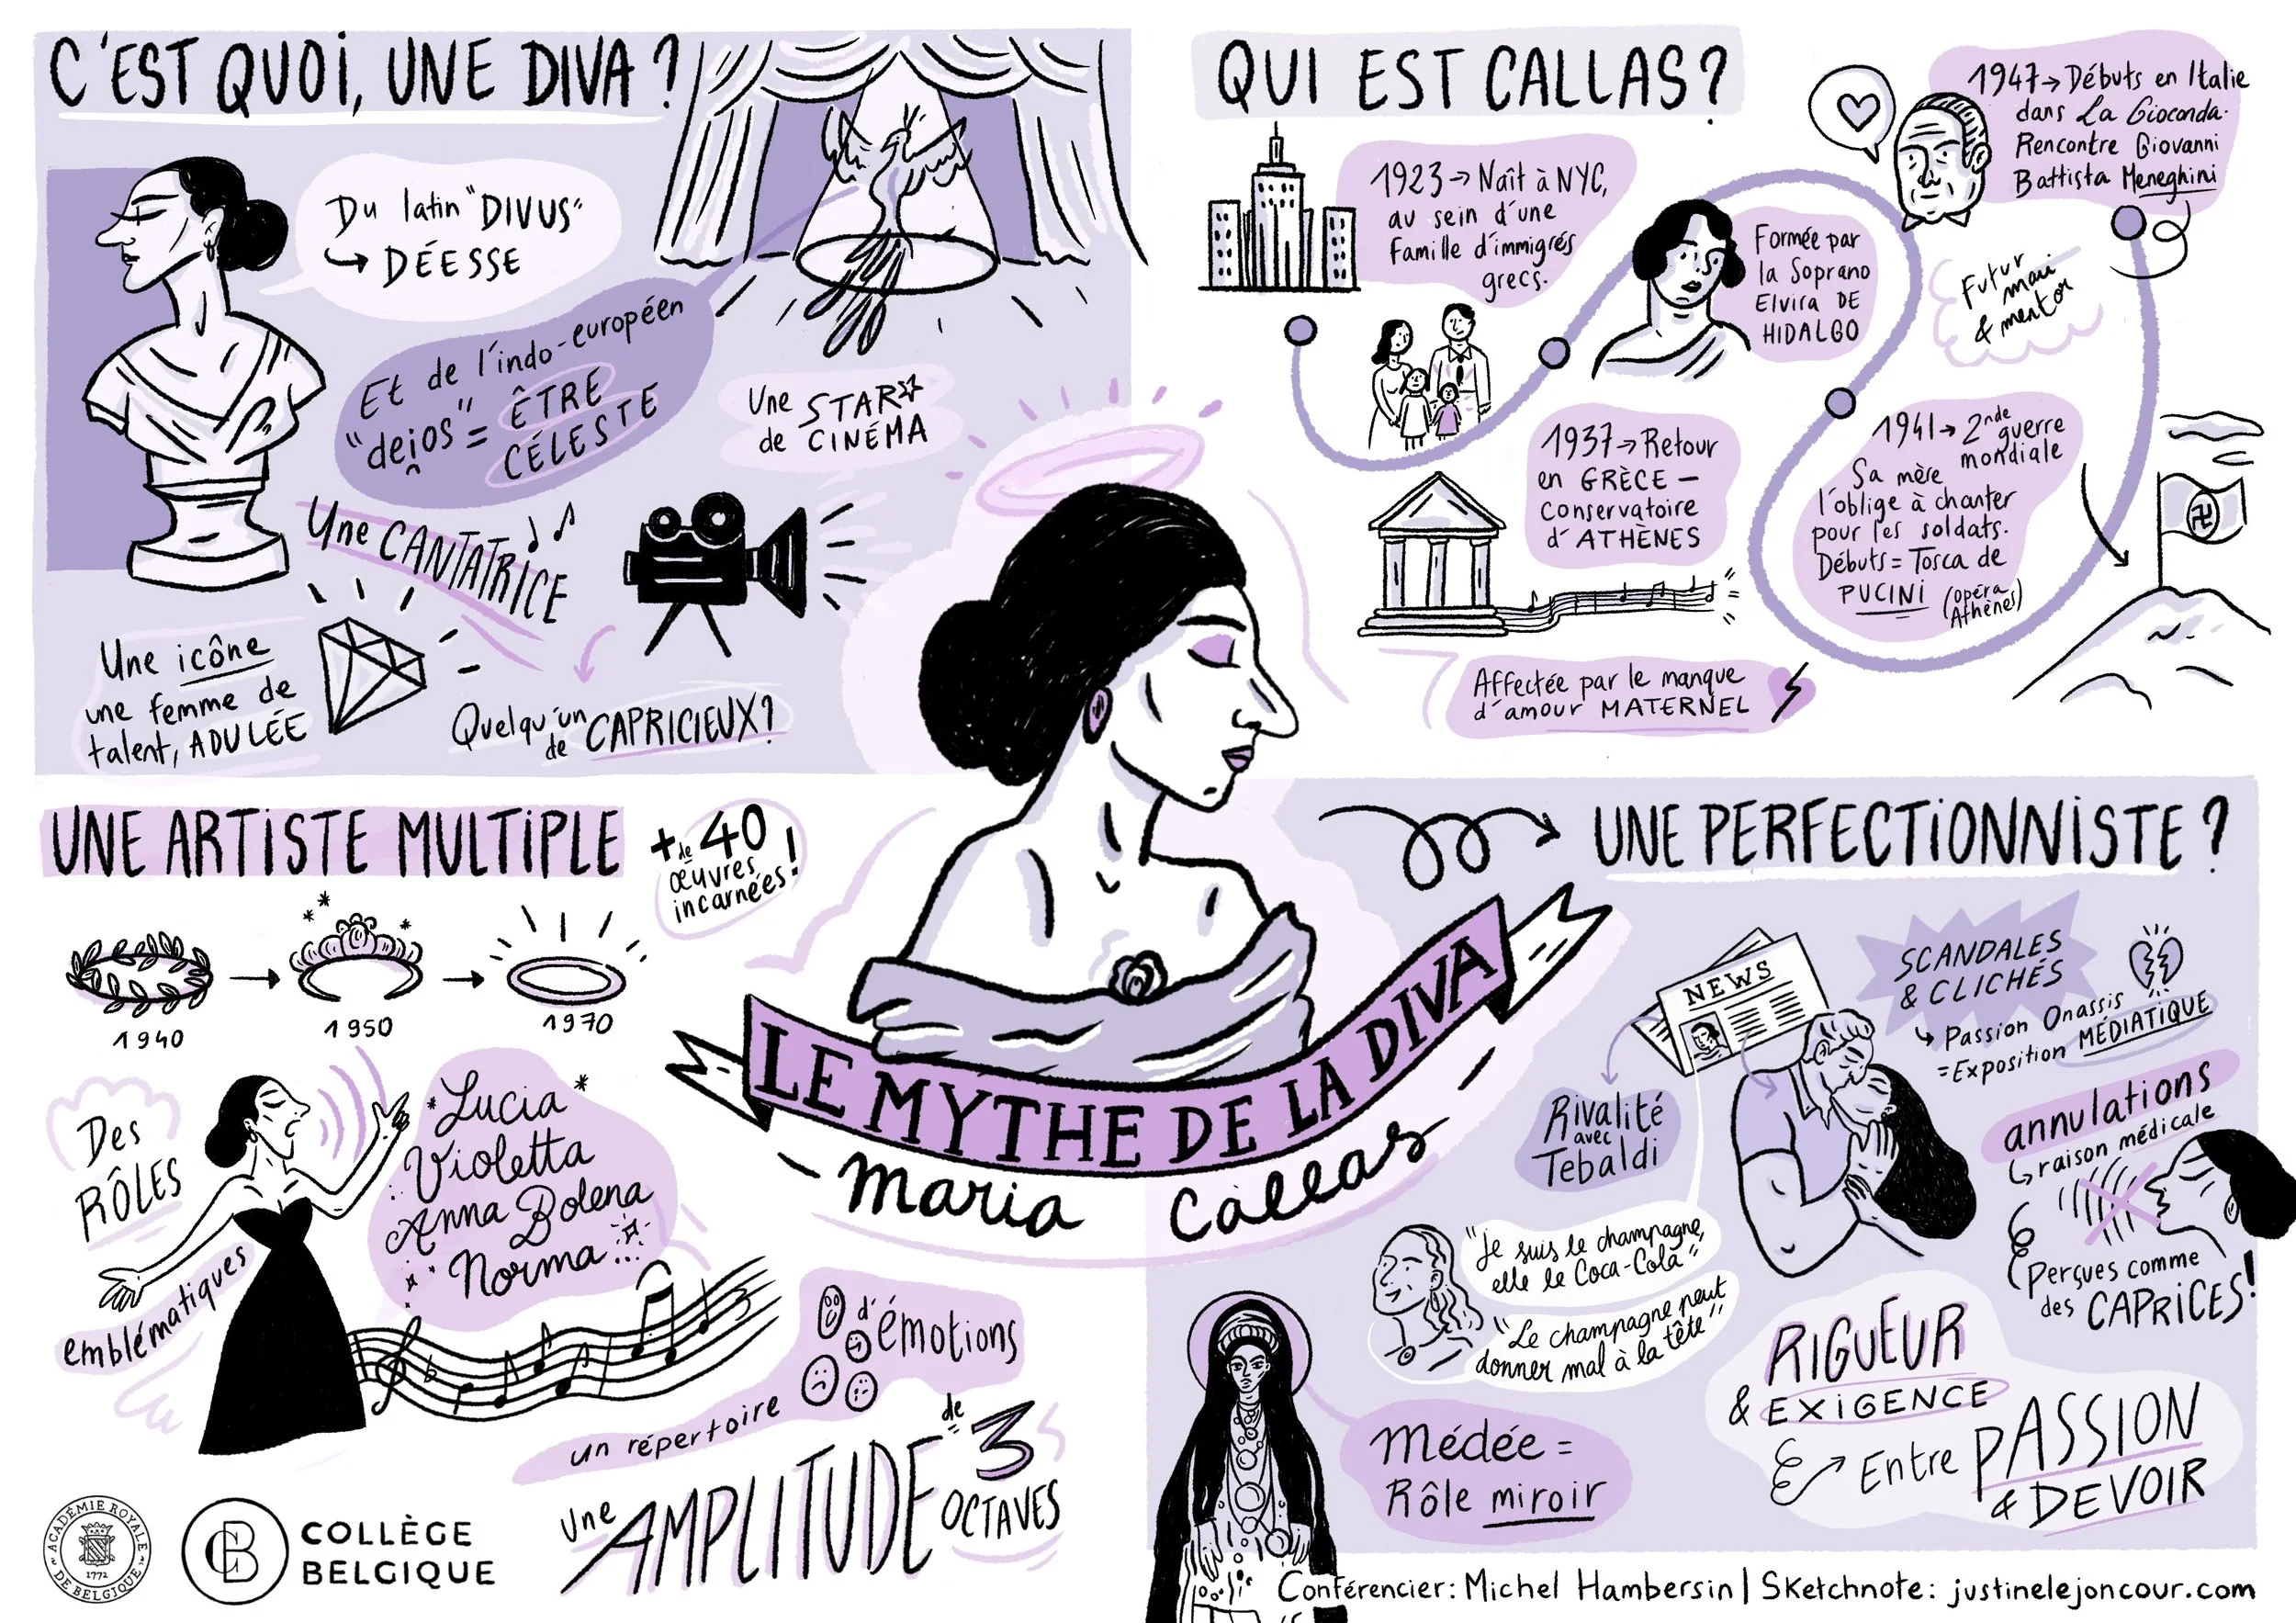 C'EST QUOI, UNE DIVA ?
Du latin "DIVUS"
↳ DÉESSE
Et de l'indo-européen
"deiôs" = ÊTRE
CÉLESTE
Une STAR
de CINÉMA
Une CANTATRICE
Une icône
une femme de
talent, ADULÉE
Quelqu'un
de CAPRICIEUX ?
QUI EST CALLAS ?
1923 → Naît à NYC,
au sein d'une
Famille d'immigrés
grecs.
Formée par
la Soprano
Elvira DE
HIDALGO
1947 → Débuts en Italie
dans La Gioconda.
Rencontre Giovanni
Battista Meneghini
Futur
mari
& mentor
1937 → Retour
en GRÈCE –
Conservatoire
d'ATHÈNES
1941 → 2nde guerre
mondiale
Sa mère
l'oblige à chanter
pour les soldats.
Débuts = Tosca de
PUCINI (opéra
Athènes)
Affectée par le manque
d'amour MATERNEL
LE MYTHE DE LA DIVA
Maria Callas
UNE ARTISTE MULTIPLE
+ de 40
œuvres
incarnées !
1940 → 1950 → 1970
Des
RÔLES
emblématiques
Lucia
Violetta
Anna Bolena
Norma...
un répertoire d'émotions
Une AMPLITUDE de 3
OCTAVES
UNE PERFECTIONNISTE ?
NEWS
SCANDALES
& CLICHÉS
↳ Passion Onassis
= Exposition MÉDIATIQUE
Rivalité
avec
Tebaldi
"Je suis le champagne,
elle le Coca-Cola"
"Le champagne peut
donner mal à la tête"
annulations
↳ raison médicale
Perçues comme
des CAPRICES !
Médée =
Rôle miroir
RIGUEUR
& EXIGENCE
Entre PASSION
& DEVOIR
ACADÉMIE ROYALE
DE BELGIQUE
1772
CB
COLLÈGE
BELGIQUE
Conférencier : Michel Hambersin | Sketchnote : justinelejoncour.com